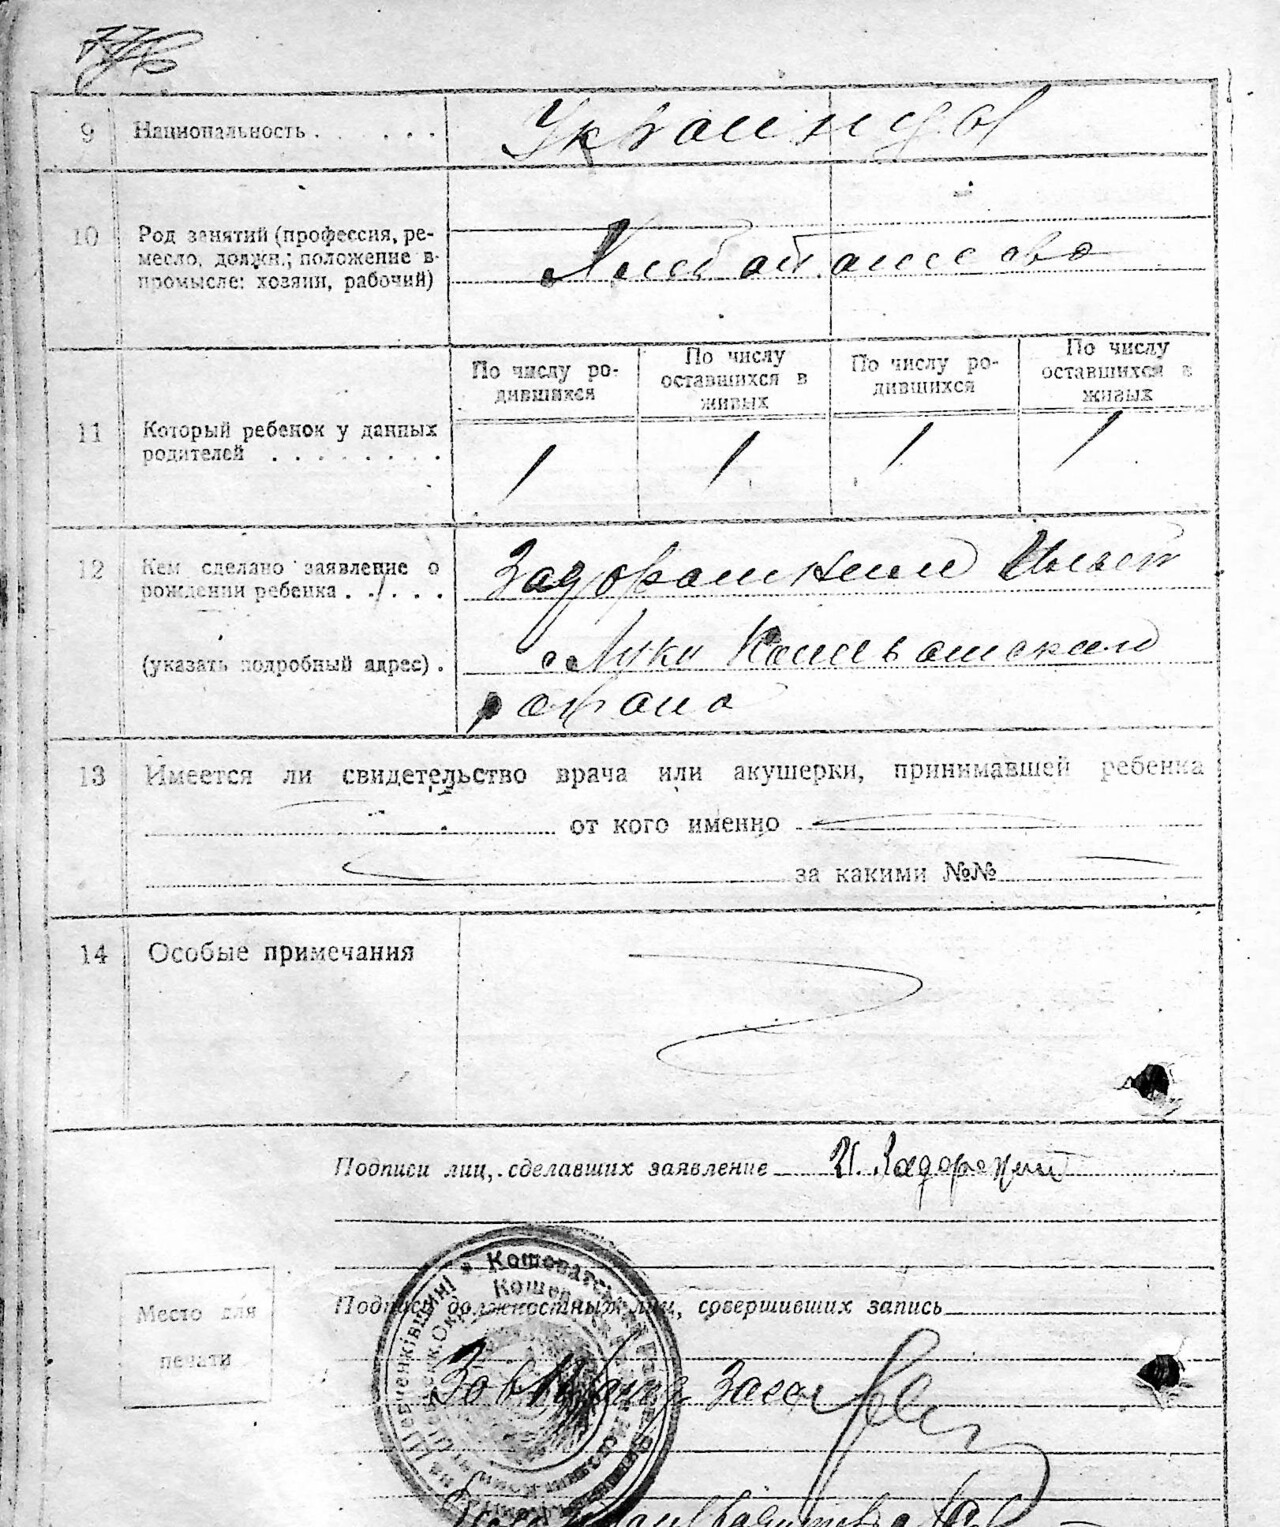 9 Национальность . . . . . . Украинцы
10 Род занятий (профессия, ре-
месло, должн.; положение в
промысле: хозяин, рабочий)
Хлебопашество
По числу ро-
дившихся
По числу
оставшихся в
живых
По числу ро-
дившихся
По числу
оставшихся в
живых
11 Который ребенок у данных
родителей . . . . . . . .
1 1 1 1
12 Кем сделано заявление о
рождении ребенка . . . . .
(указать подробный адрес) .
Луки
района
13 Имеется ли свидетельство врача или акушерки, принимавшей ребенка
от кого именно
за какими №№
14 Особые примечания
Подписи лиц, сделавших заявление И. Задорожний
Место для
печати
Подписи должностных лиц, совершивших запись
на Шевченківщині * Кошоватський